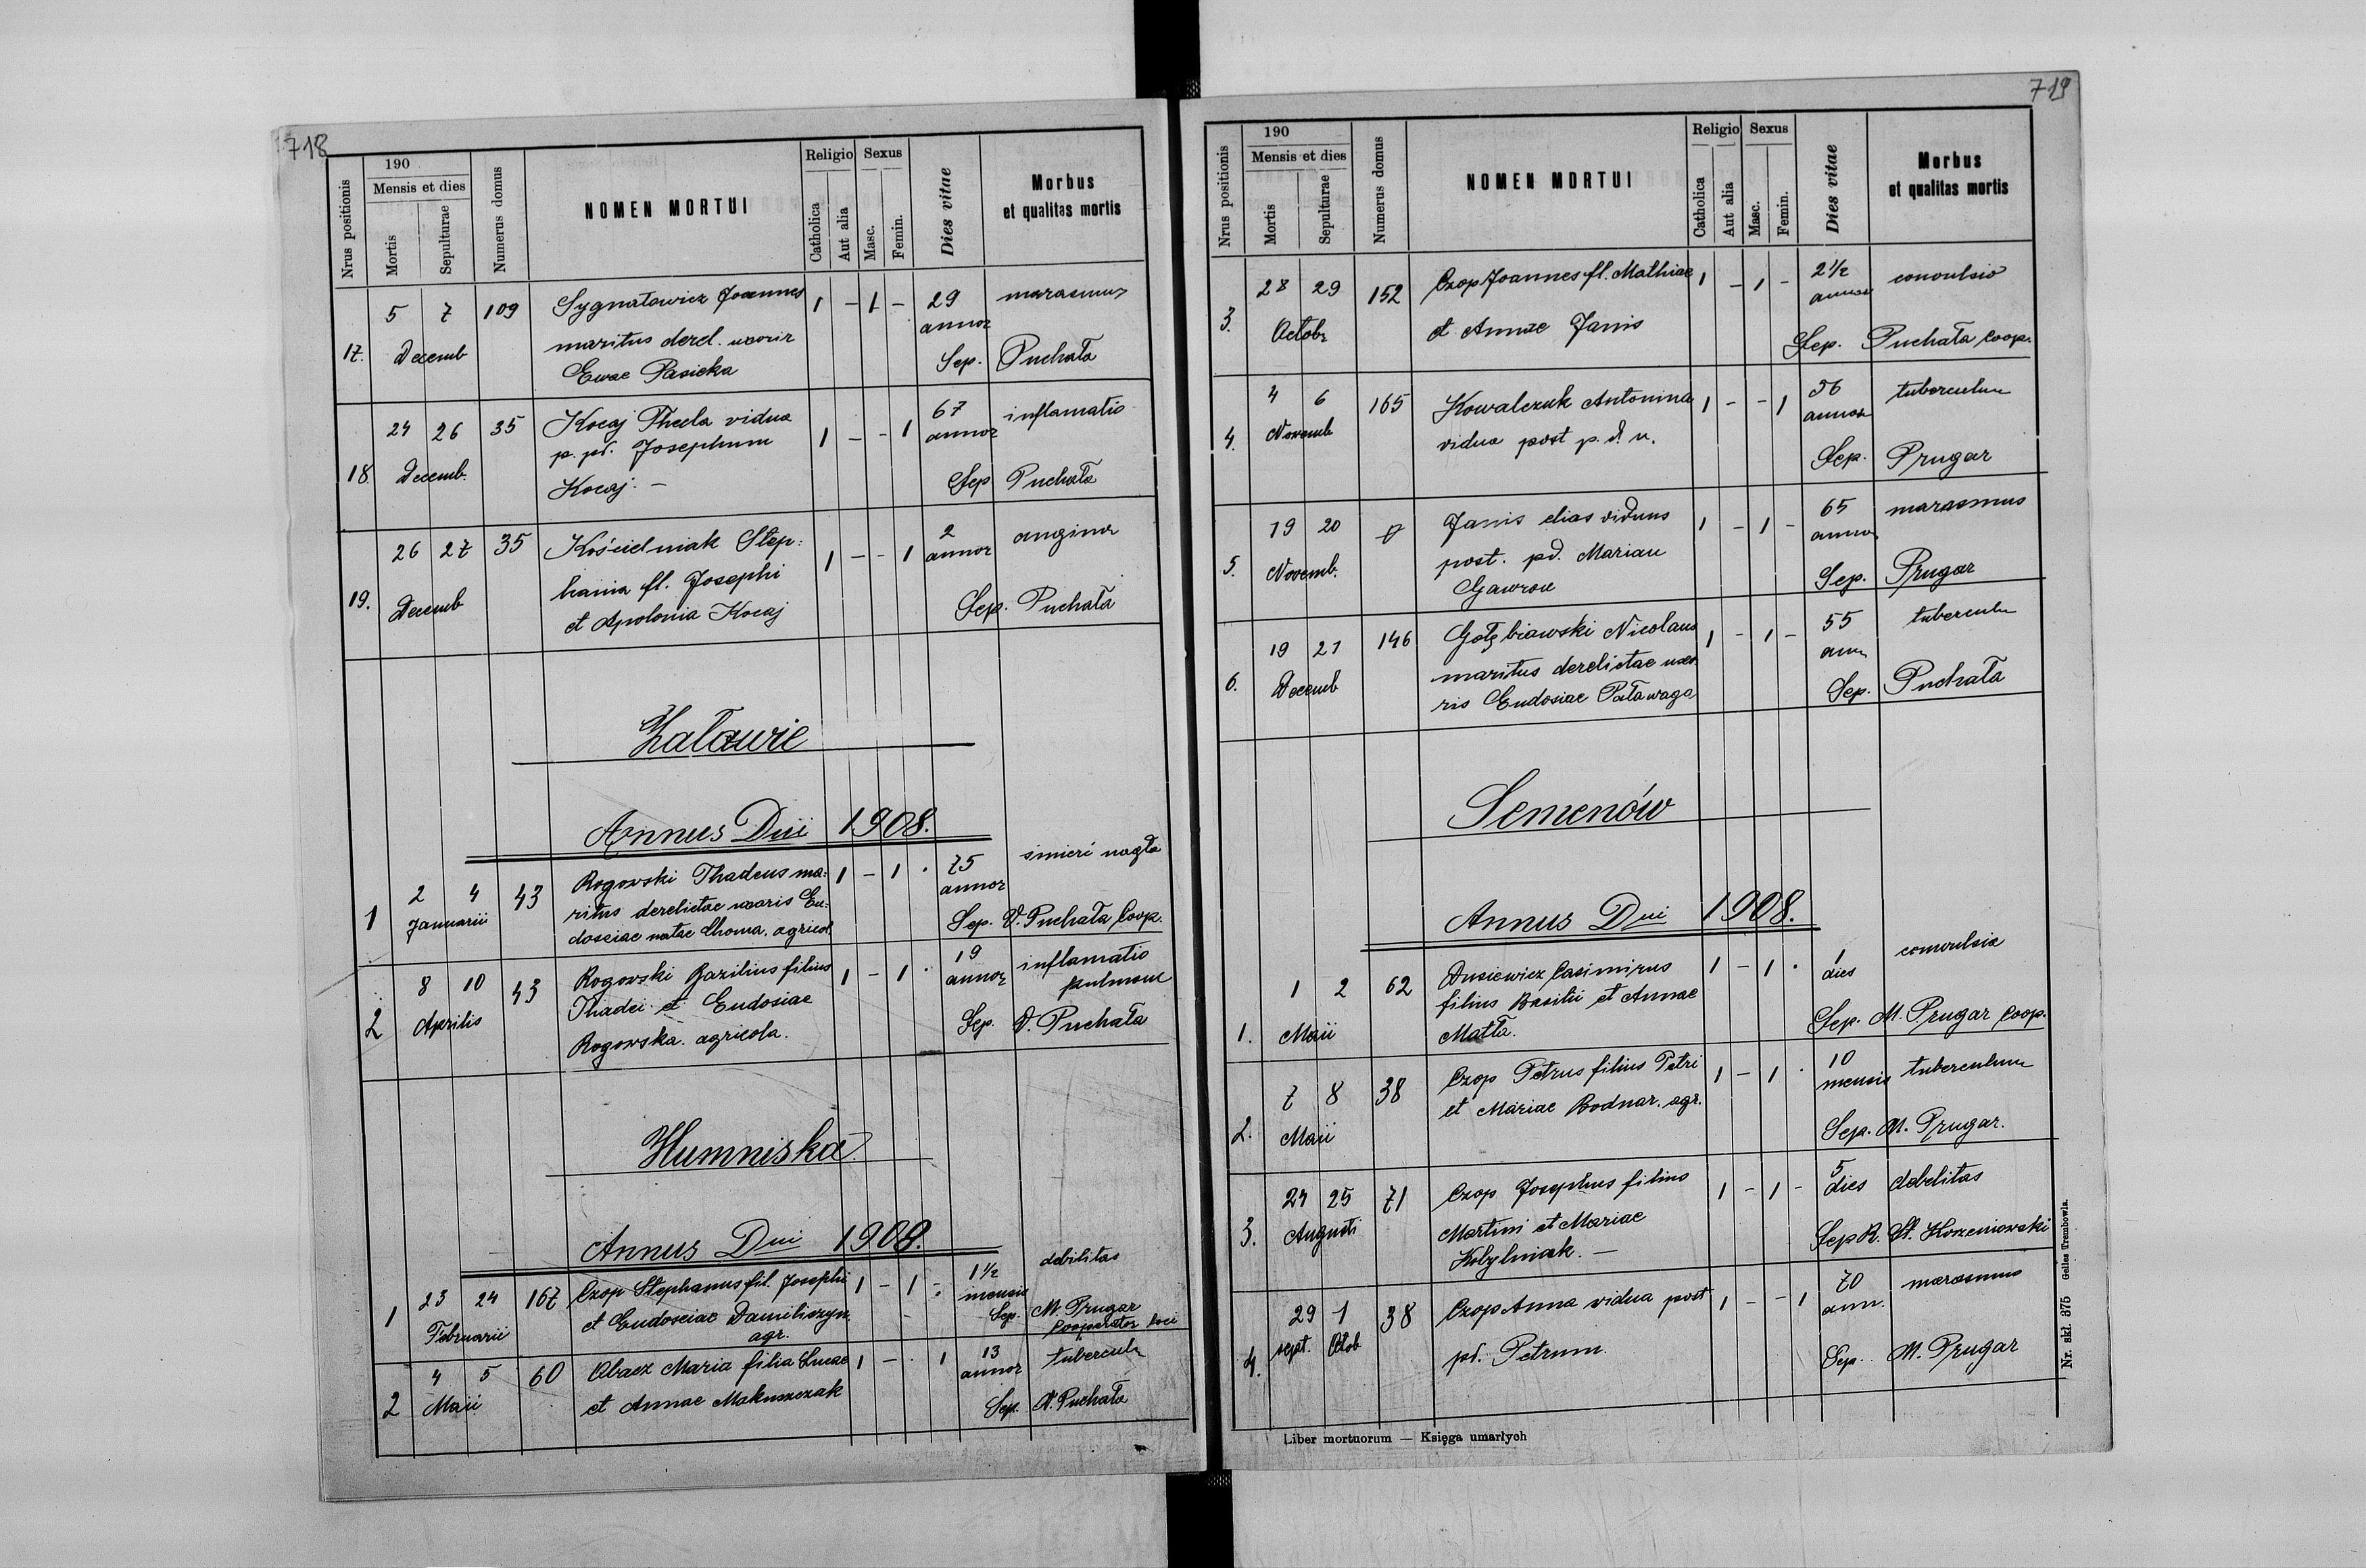 718
190
Nrus positionis
Mensis et dies
Mortis
Sepulturae
Numerus domus
NOMEN MORTUI
Religio
Catholica
Aut alia
Sexus
Masc.
Femin.
Dies vitae
Morbus
et qualitas mortis
5 7 109 Sygnatowicz Joannes 1 - 1 - 29 marasmus
maritus derel. uxoris annor
17. Decemb Ewae Pasicka Sep. Puchała
24 26 35 Kocaj Thecla vidua 67 inflamatio
p. pd. Josephum 1 - - 1 annor
18. Decemb. Kocaj. - Sep Puchała
26 27 35 Kościelniak Step: 2 angina
hania fl. Josephi 1 - - 1 annor
19. Decemb et Apolonia Kocaj Sep. Puchała
Załawie
Annus Dni 1908.
2 4 43 Rogowski Thadeus ma: 1 - 1 . 75 śmierć nagła
Januarii ritus derelictae uxoris Eu: annor
1 dosciae natae Choma, agricol. Sep. V. Puchała Coop.
8 10 43 Rogowski Bazilius filius 1 - 1 . 19 inflamatio
Thadei et Eudosiae annor pulmonum
2 Aprilis Rogowska. agricola. Sep. V. Puchała
Humniska
Annus Dni 1908.
23 24 167 Czop Stephanus fil. Josephi 1 - 1 . 1½ debilitas
et Eudosciae Daniliszyn mensis
1 Februarii agr. Sep. M. Prugar
Cooperator loci
4 5 60 Abacz Maria filia Lucae 1 - . 1 13 tubercul
2 Maii et Annae Makuszczak annor
Sep. V. Puchała
719
190
Nrus positionis
Mensis et dies
Mortis
Sepulturae
Numerus domus
NOMEN MORTUI
Religio
Catholica
Aut alia
Sexus
Masc.
Femin.
Dies vitae
Morbus
et qualitas mortis
28 29 152 Czop Joannes fl. Mathiae 1 - 1 - 2½ convulsio
annor
3. Octobr et Annae Janis Sep. Puchała Coop.
4 6 165 Kowalczuk Antonina 1 - - 1 56 tuberculum
annor
4. Novemb vidua post p. d. u. Sep. Prugar
19 20 Janis elias viduus 1 - 1 - 65 marasmus
post. pd. Marian annor
5. Novemb. Gawron Sep. Prugar
19 21 146 Gołębiawski Nicolaus 1 - 1 - 55 tubercul
maritus derelictae uxo ann
6. Decemb ris Eudosiae Paławaga Sep. Puchała
Semenów
Annus Dni 1908.
1 2 62 Dusiewicz Casimirus 1 - 1 . 1 convulsia
filius Basilii et Annae dies
1. Maii Matła. Sep. M. Prugar Coop.
7 8 38 Czop Petrus filius Petri 1 - 1 . 10 tuberculum
et Mariae Bodnar. agr. mensis
2. Maii Sep. M. Prugar.
24 25 71 Czop Josephus filius 1 - 1 - 5 debelitas
Martini et Mariae dies
3. Augusti Kobylniak. - Sep R. St. Korzeniowski
29 1 38 Czop Anna vidua post 1 - - 1 70 marasmus
sept. Octob ann.
4. pd. Petrum. Sep. M. Prugar
Liber mortuorum — Księga umarłych
Nr. skł. 375 Gelles Trembowla.